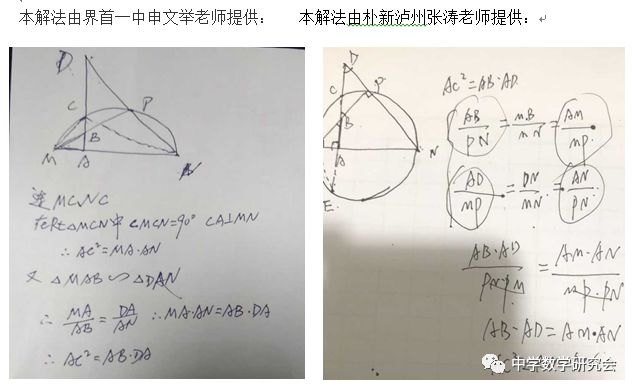 本解法由界首一中申文举老师提供：
本解法由朴新泸州张涛老师提供：
D
C
P
B
M
A
N
连MC、NC
在Rt△MCN中 ∠MCN=90° CA⊥MN
∴ AC²=MA·AN
又 △MAB∽△DAN
∴ MA/AB=DA/AN ∴MA·AN=AB·DA
∴ AC²=AB·DA
D
P
C
B
A
N
E
AC²=AB·AD
AB/PN=MB/MN=AM/MP
AD/MP=DN/MN=AN/PN
AB·AD/PN·PM=AM·AN/MP·PN
AB·AD=AM·AN
中学数学研究会